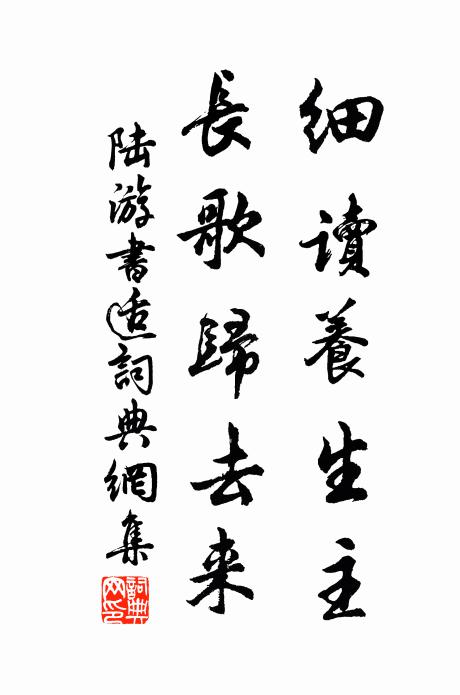 细讀養生主
長歌歸去来
陸游書适詞典網集
詞典网印